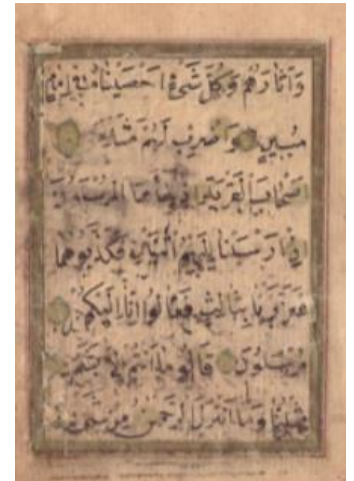 وَاٰثَارَهُمْ وَكُلَّ شَيْءٍ اَحْصَيْنَاهُ فِي اِمَامٍ
مُبِينٍ وَاضْرِبْ لَهُمْ مَثَلًا
اَصْحَابَ الْقَرْيَةِ اِذْ جَاءَهَا الْمُرْسَلُونَ
اِذْ اَرْسَلْنَا اِلَيْهِمُ اثْنَيْنِ فَكَذَّبُوهُمَا
فَعَزَّزْنَا بِثَالِثٍ فَقَالُوا اِنَّا اِلَيْكُمْ
مُرْسَلُونَ قَالُوا مَا اَنْتُمْ اِلَّا بَشَرٌ
مِثْلُنَا وَمَا اَنْزَلَ الرَّحْمٰنُ مِنْ شَيْءٍ